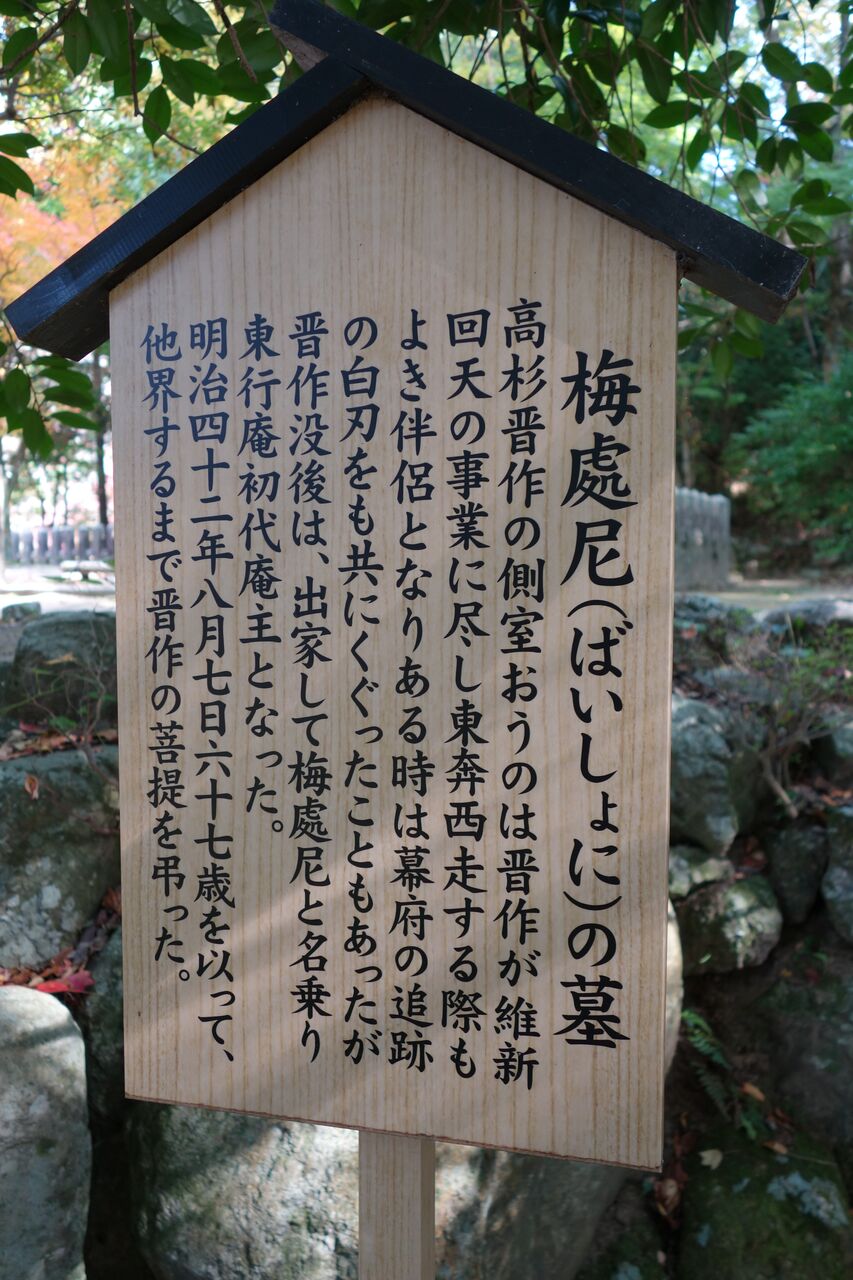 梅處尼(ばいしょに)の墓
高杉晋作の側室おうのは晋作が維新
回天の事業に尽し東奔西走する際も
よき伴侶となりある時は幕府の追跡
の白刃をも共にくぐったこともあったが
晋作没後は、出家して梅處尼と名乗り
東行庵初代庵主となった。
明治四十二年八月七日六十七歳を以って、
他界するまで晋作の菩提を弔った。